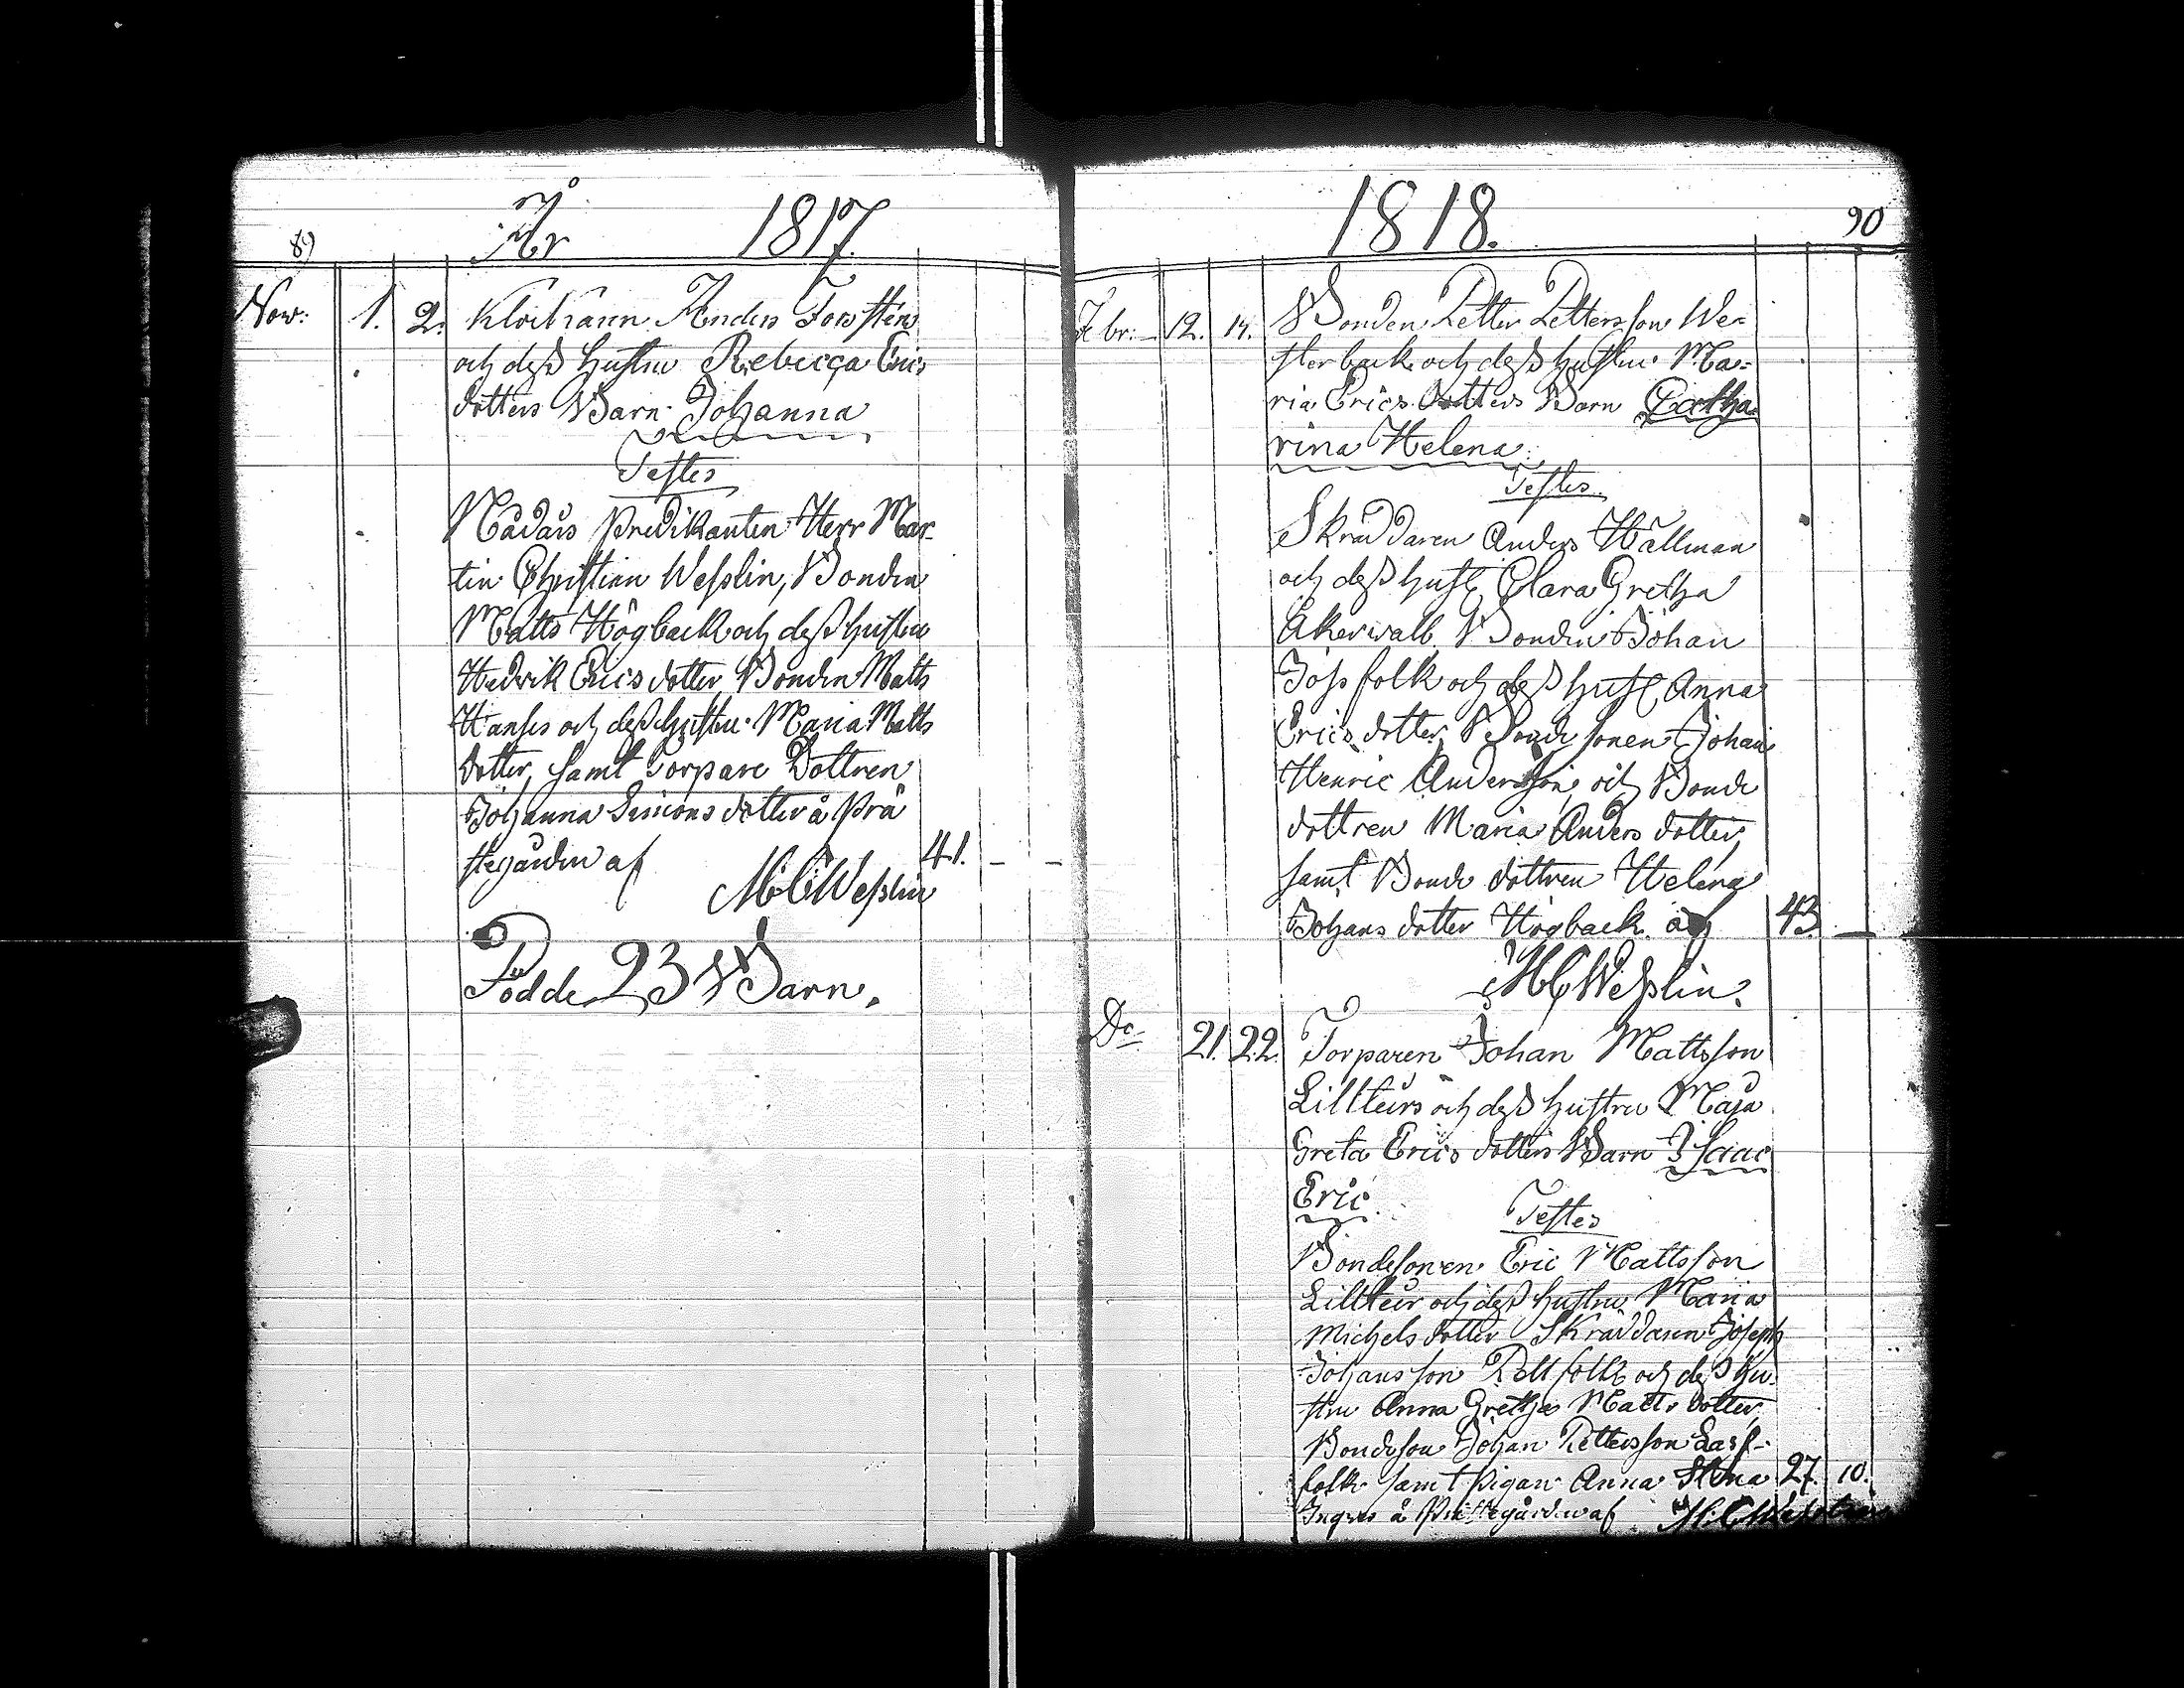 89
År 1817.
Nov: 1. 2. Klockaren Anders Forsten
och desß hustru Rebecca Erics
dotters Barn Johanna
Testes
Nådårs Predikanten Herr Mar-
tin Christian Wesslin, Bonden
Matts Högback och desß hustru
Hedvik Erics dotter, Bonden Matts
Hanses och desß hustru Maria Matts
dotter, samt Torpare Dottren
Johanna Simons dotter å Prä
stegården af 41. - -
MCWesslin
Födde 23 Barn.
1818.
90
Febr: 12. 14. Bonden Petter Pettersson We-
sterback och desß hustru Ma-
ria Erics dotters Barn Catha
rina Helena.
Testes.
Skräddaren Anders Hällman
och desß hust Clara Gretha
Åkerwall, Bonden Johan
Joss folk och desß hust Anna
Erics dotter, Bonde sonen Johan
Henric Andersson, och Bonde
dottren Maria Anders dotter,
samt Bonde dottren Helena
Johans dotter Högback af 43. —
MCWesslin.
Do 21. 22. Torparen Johan Mattsson
Lillteirs och desß hustru Maja
Greta Erics dotters Barn Isaac
Eric.
Testes
Bondesonen Eric Mattsson
Lillteir och desß hustru Maria
Michels dotter Skräddaren Joseph
Johansson folk och desß hu-
stru Anna Gretha Matts dotter
Bondeson Johan Pettersson Lass-
folk samt Pigan Anna Stina 27. 10.
å Prästegården af